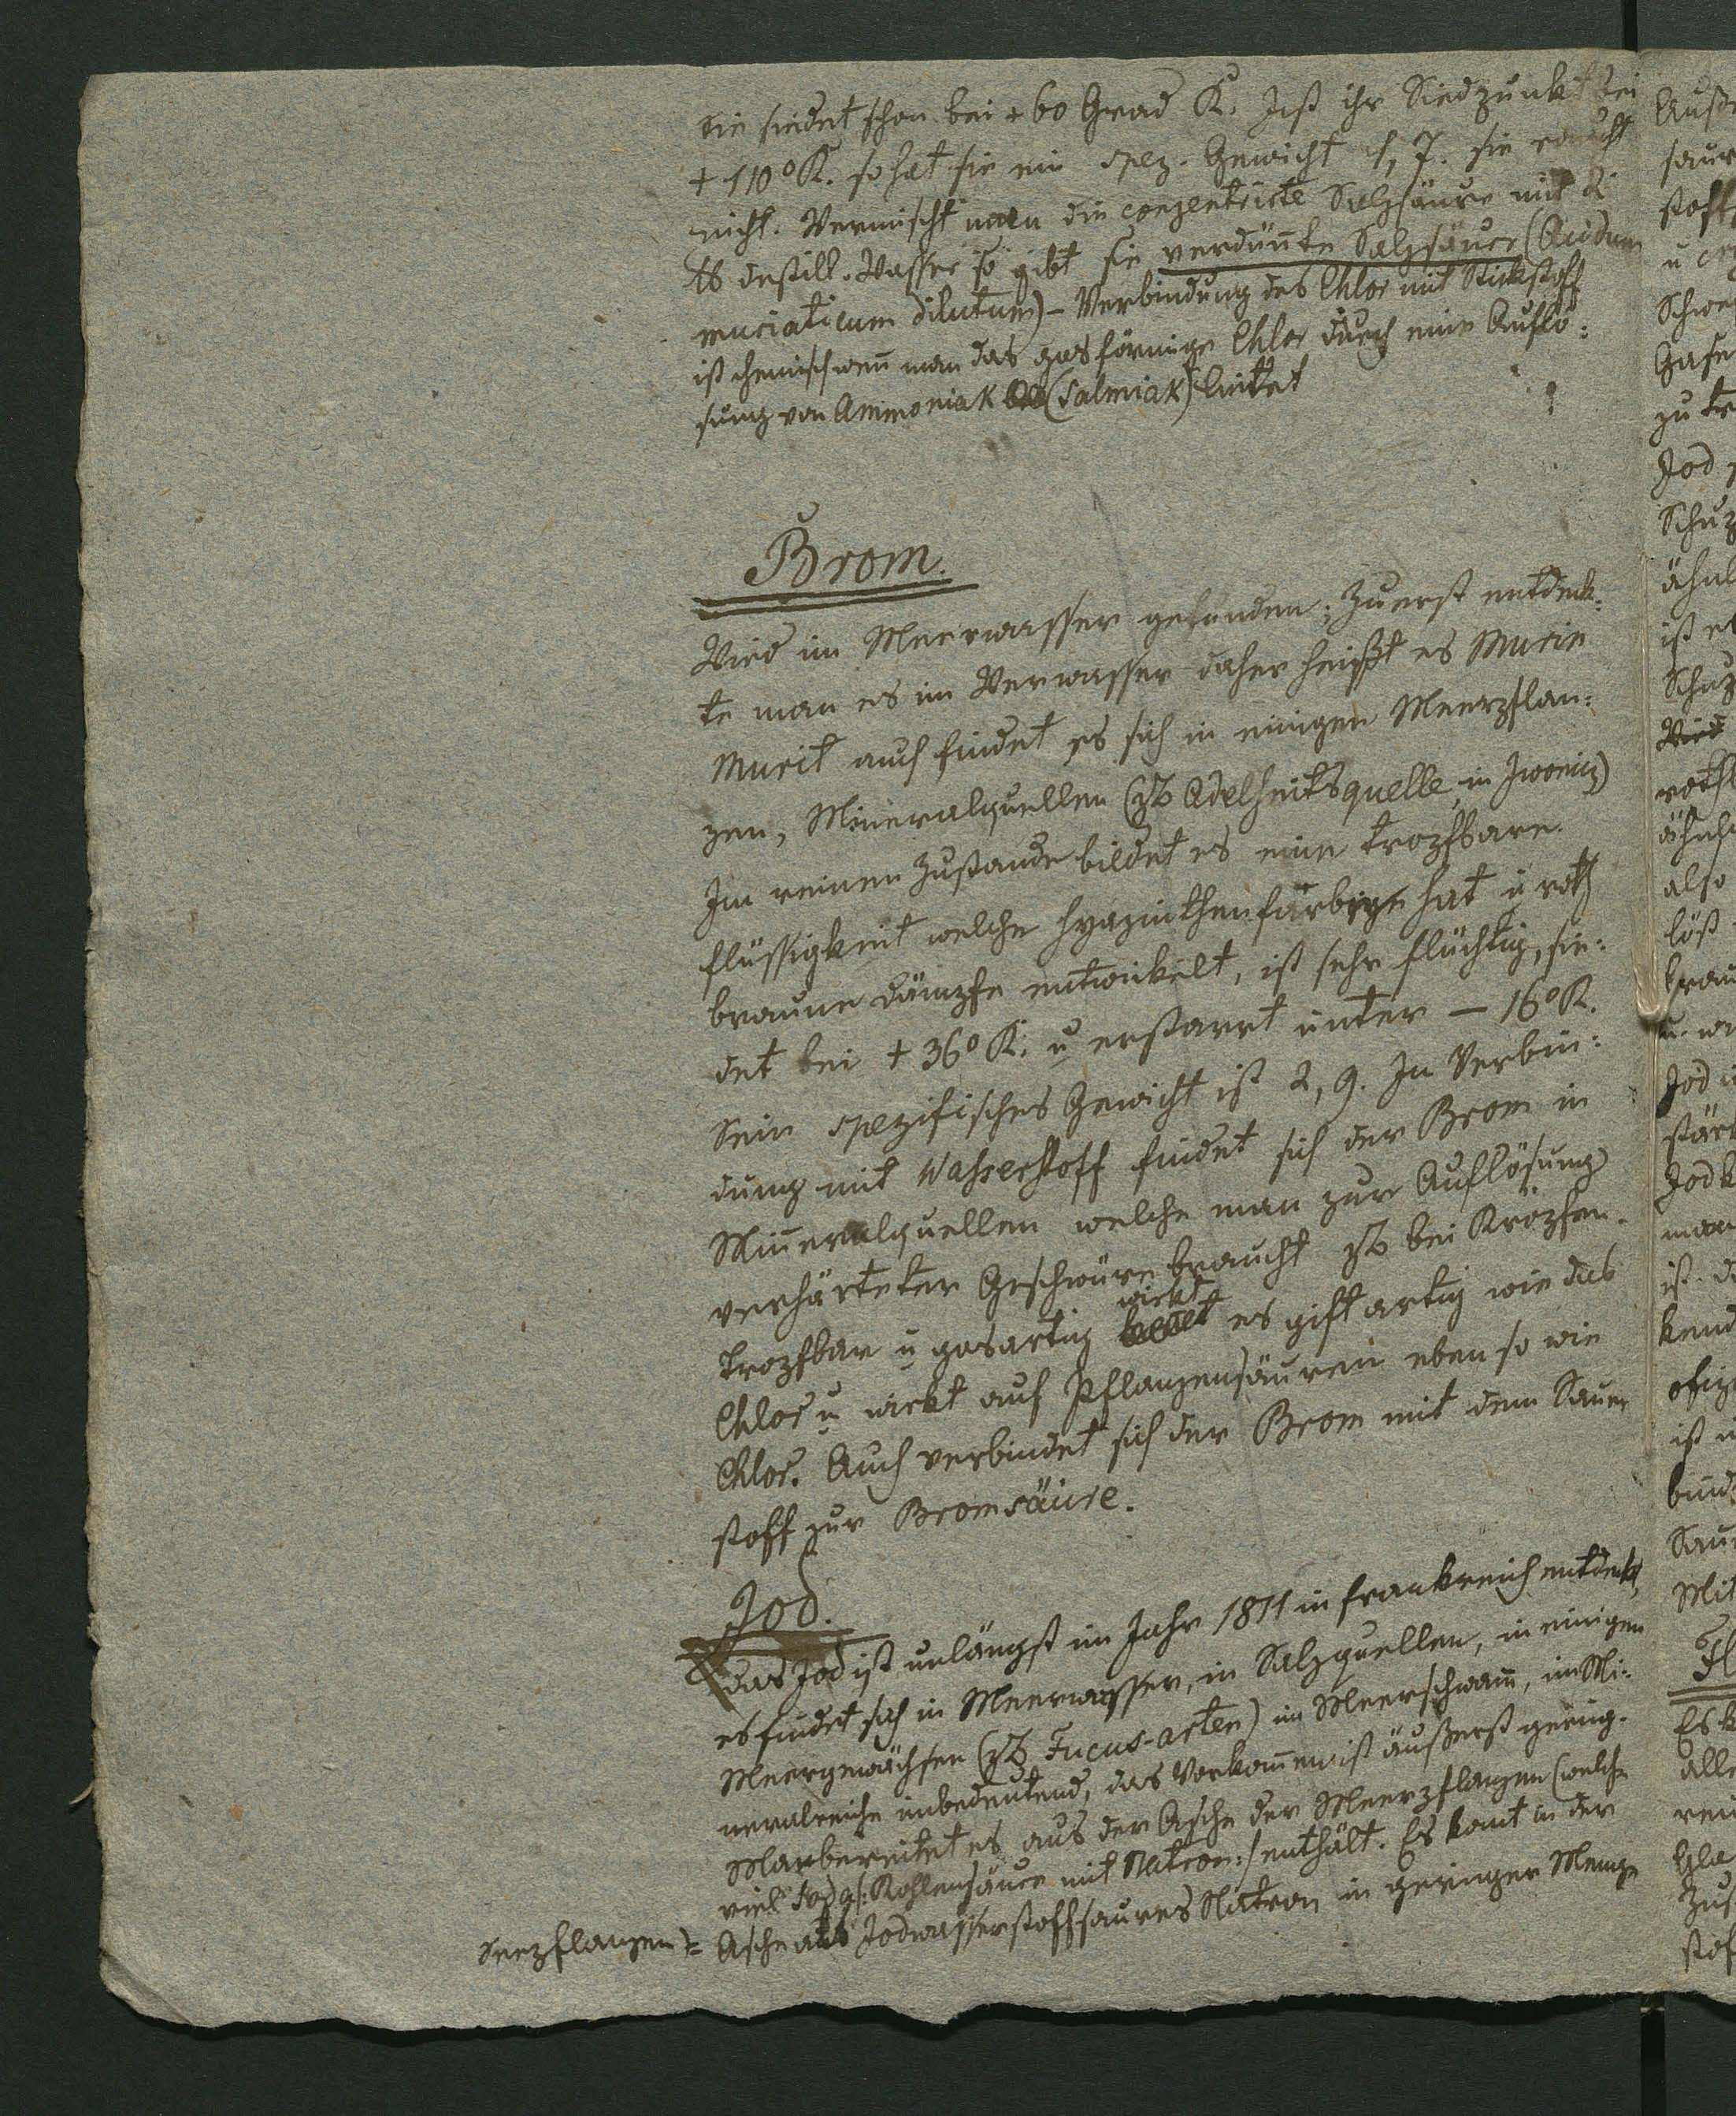 Sie siedet schon bei + 60 Grad R. Ist ihr Siedpunkt bei
+ 110° R. so hat sie ein spez. Gewicht 1, 7. sie raucht
nicht. Vermischt man die conzentrirte Salzsäure mit 2
℔ destill. Wasser so gibt sie verdünte Salzsäure (Acidum
muriaticum dilutum) – Verbindung des Chlor mit Stickstoff
ist chemisch wenn man das gasförmige Chlor durch eine Auflö:
sung von Ammoniak (Salmiak) leitet
Brom.
Wird im Meerwasser gefunden; Zuerst entdeck:
te man es im Meerwasser daher heißt es Murin
Murit auch findet es sich in einigen Meerpflan:
zen, Mineralquellen (zB Adelheitsquelle, in Iwonicz)
Im reinen Zustande bildet es eine tropfbare
Flüssigkeit welche hyazinthenfarbige hat u roth
braune Dämpfe entwickelt, ist sehr flüchtig, sie:
det bei + 36° R. u erstarrt unter – 16° R.
Sein spezifisches Gewicht ist 2, 9. In Verbin:
dung mit Wasserstoff findet sich der Brom in
Mineralquellen welche man zur Auflösung
verhärteter Geschwüre braucht zB bei Kröpfen.
Tropfbar u gasartig wirkt es giftartig wie das
Chlor u wirkt auf Pflanzensäuren eben so wie
Chlor. Auch verbindet sich der Brom mit dem Sauer
stoff zur Bromsäure.
Jod.
das Jod ist unlängst im Jahr 1811 in Frankreich entdekt,
es findet sich in Meerwasser, in Salzquellen, in einigen
Meergewächsen (zB Fucus-arten) im Meerschwam̄, im Mi:
neralreiche unbedeutend, das Vorkom̄en ist äußerst gering.
Man bereitet es aus der Asche der Meerpflanzen (welche
viel Soda /: Kohlensäure mit Natron :/ enthält. Es kom̄t in der
Seepflanzen = Asche als Jodwasserstoffsaures Natron in geringer Menge
Auß
saur
stoff
Schwe
Gase
zu
Jod
ähnl
ist
roth
ähnl
also
löst
Jod
stär
Jodk
man
ist
ist
bind
Sau
Mit
Fl
Es k
alle
Gla
Zus